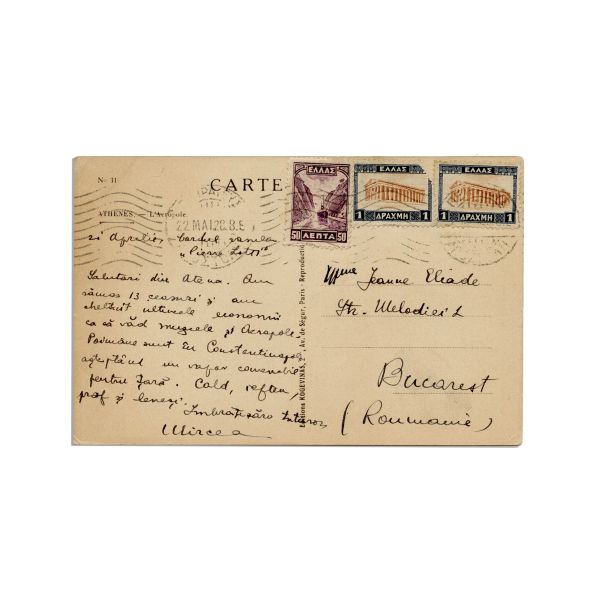 No 11
CARTE
ATHÈNES. — L'Acropole
22 MAI 28. 8.5
ΕΛΛΑΣ
50 ΛΕΠΤΑ 50
ΕΛΛΑΣ
1 ΔΡΑΧΜΗ 1
ΕΛΛΑΣ
1 ΔΡΑΧΜΗ 1
21 Aprilie bordul
"Pierre Loti"
Salutări din Atena. Am
rămas 13 ceasuri și am
cheltuit ultimele economii
ca să văd muzeele și Acropole.
Poimâine sunt în Constantinopol
așteptând un vapor convenabil
pentru țară. Cald, ieftin,
praf și leneși.
Îmbrățișări
Mircea
Editions KOGEVINAS, 2, Av. de Ségur, Paris - Reproduction
Mme Jeanne Eliade
Str. Melodiei 1
Bucarest
(Roumanie)